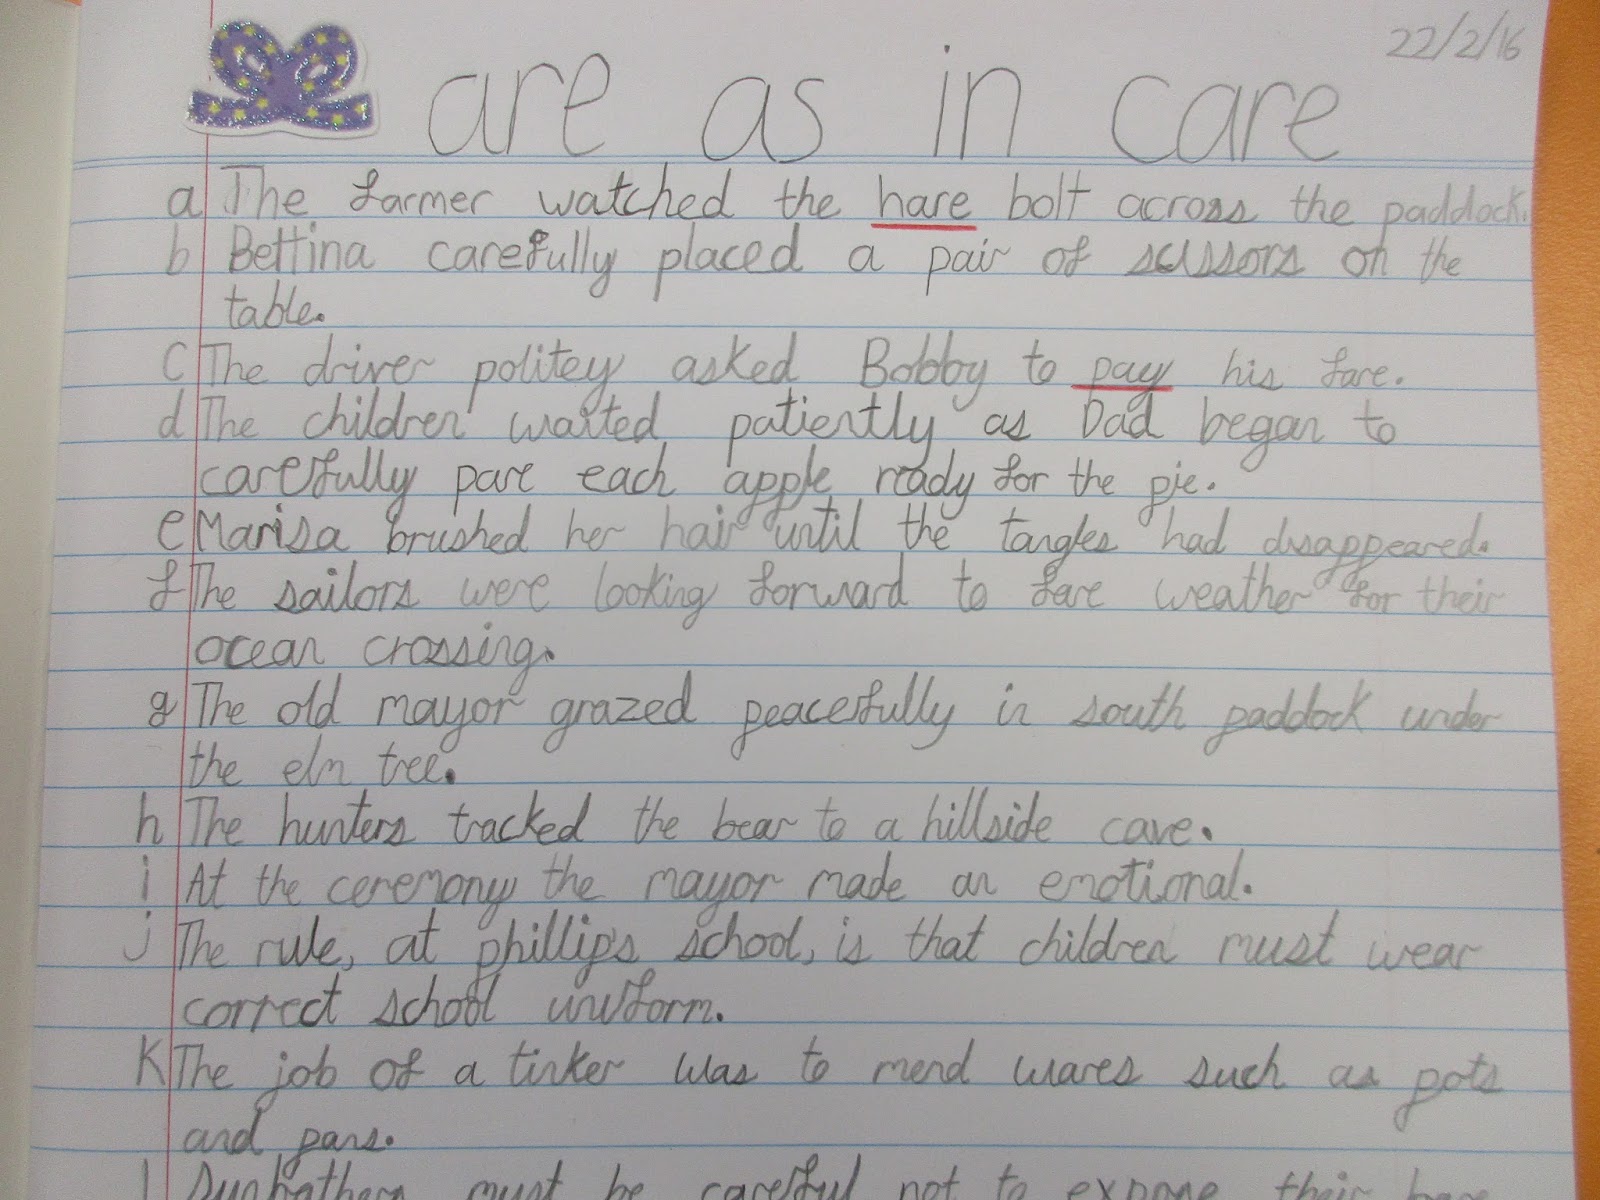 22/2/16
are as in care
a The farmer watched the hare bolt across the paddock.
b Bettina carefully placed a pair of scissors on the
table.
c The driver politey asked Bobby to pay his fare.
d The children waited patiently as Dad began to
carefully pare each apple ready for the pie.
e Marisa brushed her hair until the tangles had disappeared.
f The sailors were looking forward to fare weather for their
ocean crossing.
g The old mayor grazed peacefully in south paddock under
the elm tree.
h The hunters tracked the bear to a hillside cave.
i At the ceremony the mayor made an emotional.
j The rule, at phillip's school, is that children must wear
correct school uniform.
K The job of a tinker was to mend wares such as pots
and pans.
l Sunbathers must be careful not to expose their bare